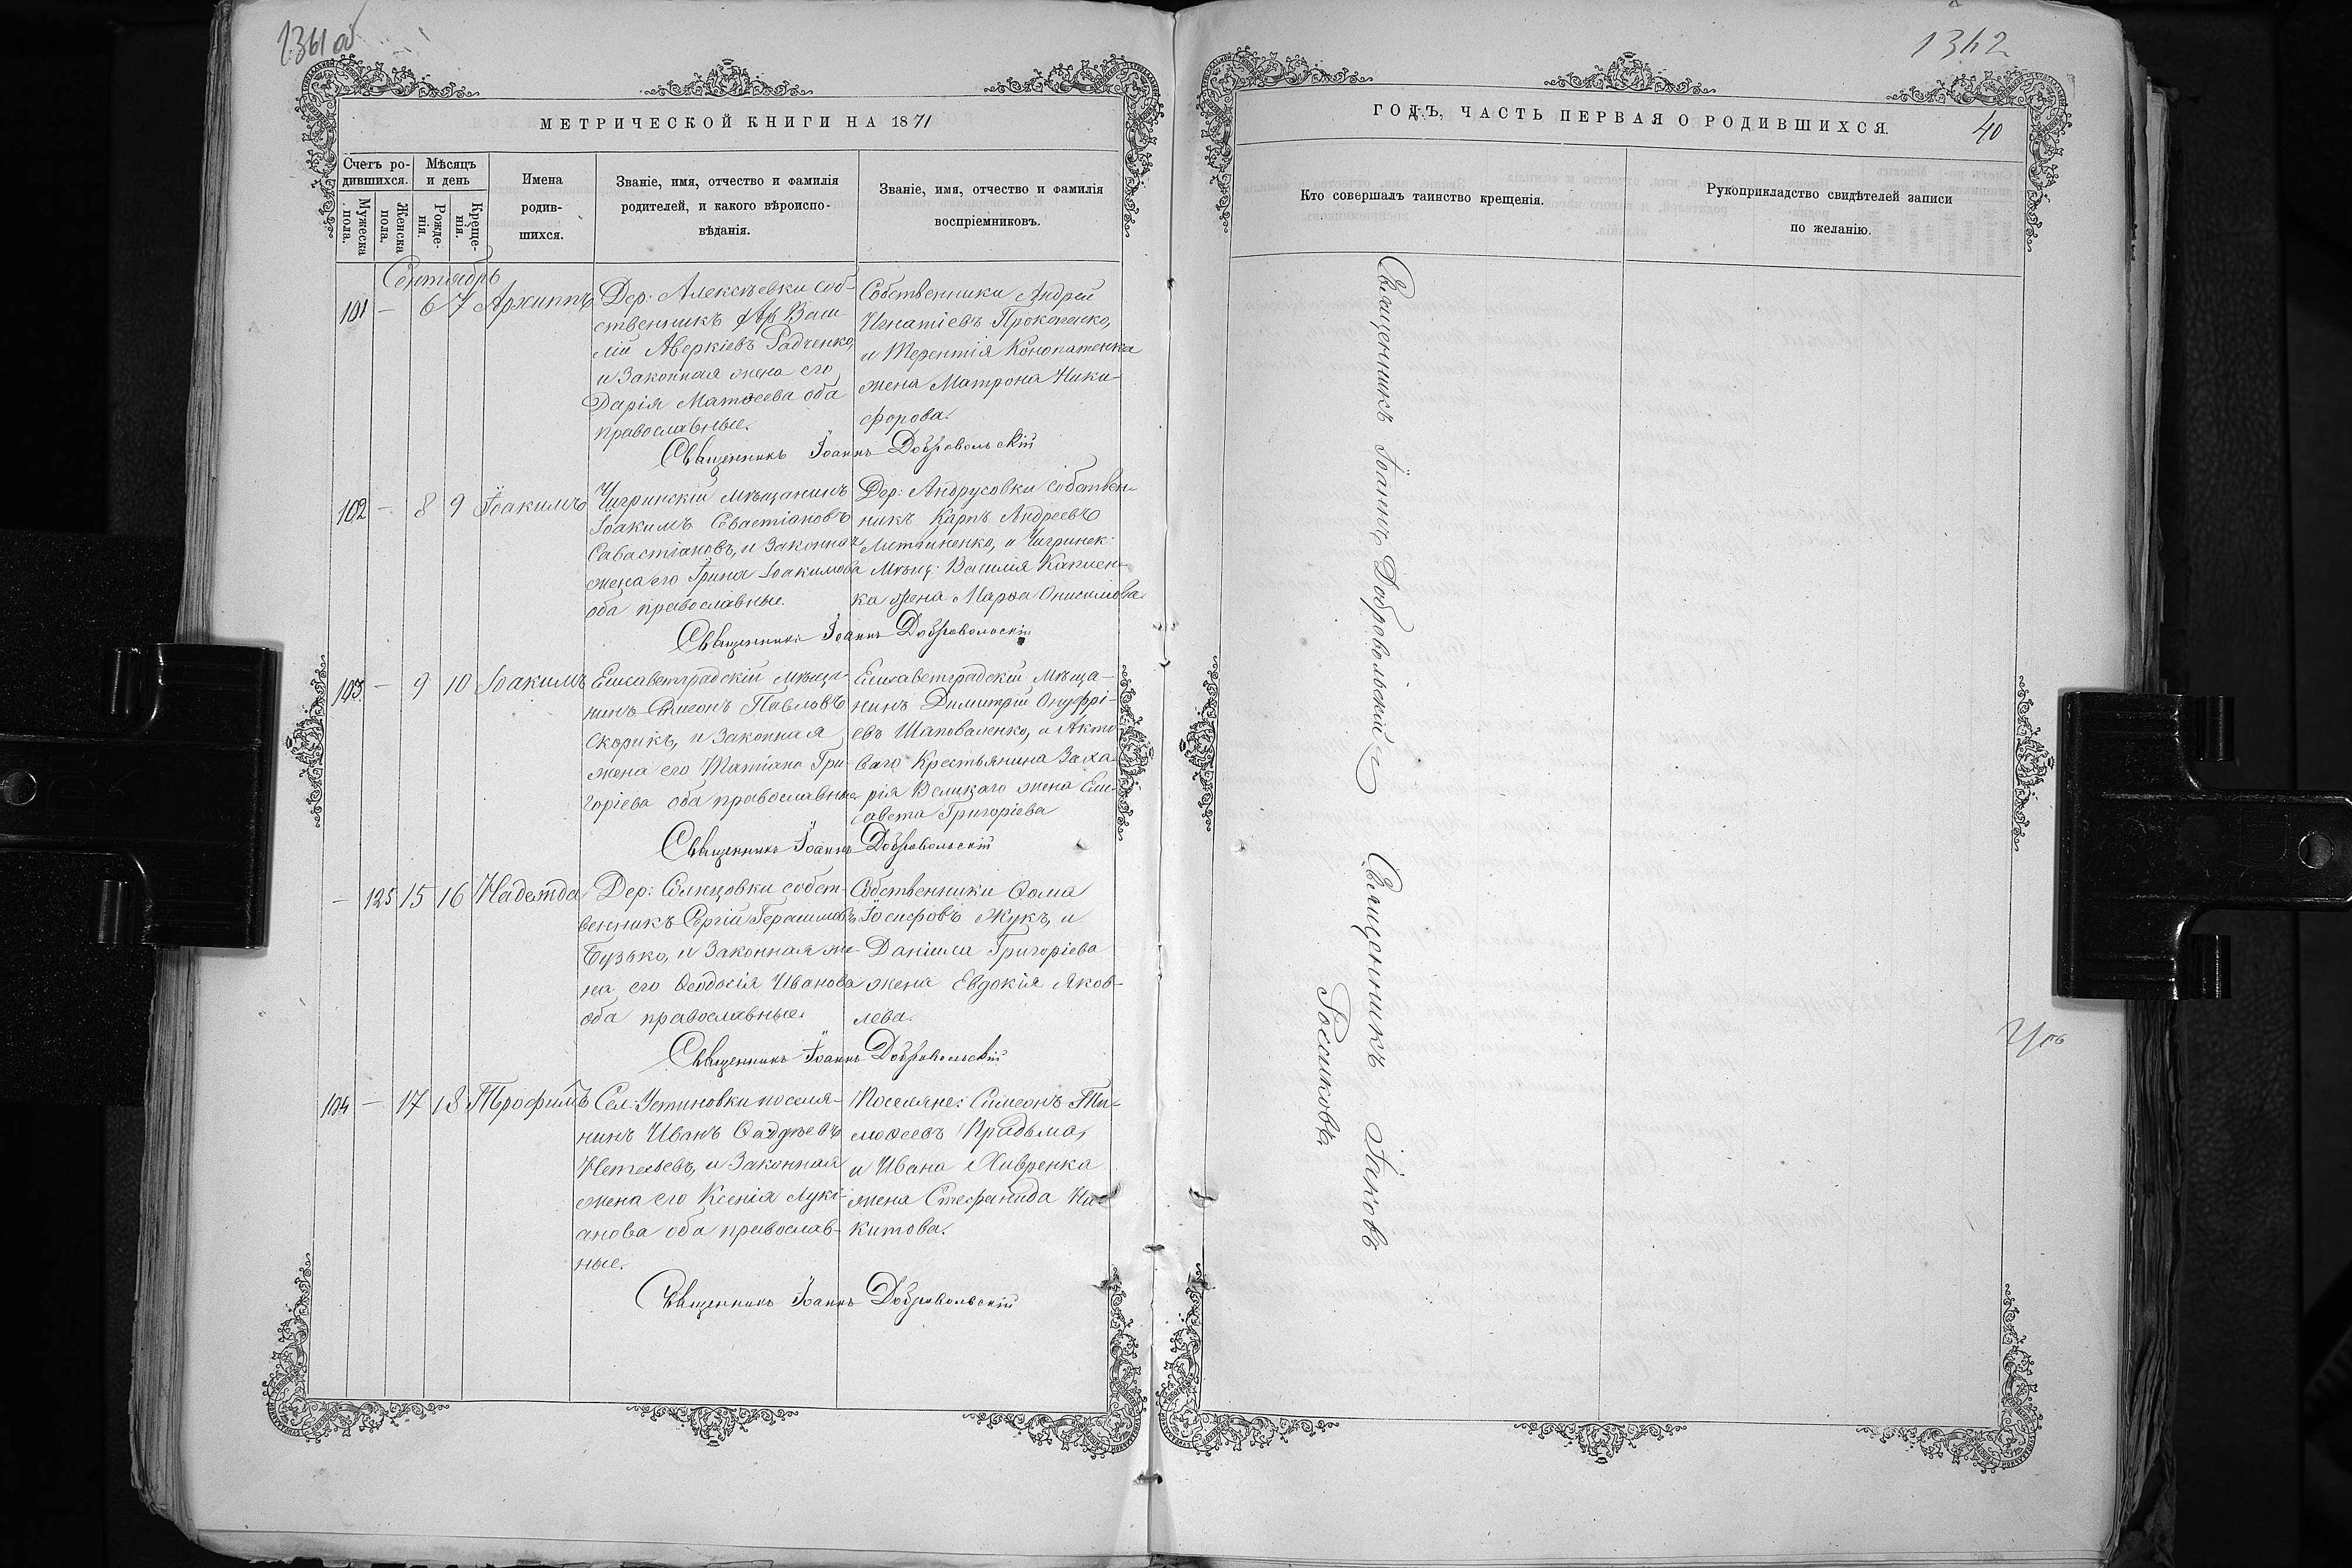 1361 об
МЕТРИЧЕСКОЙ КНИГИ НА 1871
Счетъ ро-
дившихся.
Мѣсяцъ
и день
Имена
родив-
шихся.
Званіе, имя, отчество и фамилія
родителей, и какого вѣроиспо-
вѣданія.
Званіе, имя, отчество и фамилія
воспріемниковъ.
Мужеска
пола.
Женска
пола.
Рожде-
нія.
Креще-
нія.
Сентябрь
101 – 6 7 Архиппъ
Дер: Алексѣевки соб-
ственникъ Васи-
лій Аверкіевъ Радченко,
и законная жена его
Дарія Матѳеева оба
православные.
Собственники Андрей
Игнатіевъ Прокопенко,
и Терентія Конопатенка
жена Матрона Ники-
форова.
Священникъ Іоаннъ Добровольскій
102 – 8 9 Іоакимъ
Чигринскій мѣщанинъ
Іоакимъ Севастіановъ
Савастіановъ, и законная
жена его Ірина Іоакимова
оба православные.
Дер: Андрусовки собствен-
никъ Карпъ Андреевъ
Литвиненко, и Чигринск:
Мѣщ: Василія
ка жена Марѳа Онисимова.
Священникъ Іоаннъ Добровольскій
103 – 9 10 Іоакимъ
Елисаветградскій мѣща-
нинъ Симеонъ Павловъ
Скорикъ, и законная
жена его Татіана Гри-
горіева оба православные
Елисаветградскій мѣща-
нинъ Димитрій Онуфрі-
евъ Шаповаленко, и Акто-
ваго крестьянина Заха-
рія Великаго жена Ели-
савета Григоріева
Священникъ Іоаннъ Добровольскій
– 125 15 16 Надежда
Дер: собст-
венникъ Сергій Герасимовъ
Бузько, и законная же-
на его Ѳеодосія Иванова
оба православные.
Собственники Ѳома
Іосифовъ Жукъ, и
Даніила Григоріева
жена Евдокія Яков-
лева.
Священникъ Іоаннъ Добровольскій
104 – 17 18 Трофимъ
Сел: Устиновки поселя-
нинъ Иванъ Ѳаддѣевъ
и законная
жена его Ксенія Лукі-
анова оба православ-
ные.
Поселяне: Симеонъ Ти-
моѳеевъ
и Ивана Лавренка
жена Стефанида Ни-
китова.
Священникъ Іоаннъ Добровольскій
1362
ГОДЪ, ЧАСТЬ ПЕРВАЯ О РОДИВШИХСЯ.
40
Кто совершалъ таинство крещенія.
Рукоприкладство свидѣтелей записи
по желанію.
Священникъ Іоаннъ Добровольскій
Священникъ Іаковъ
Росликовъ